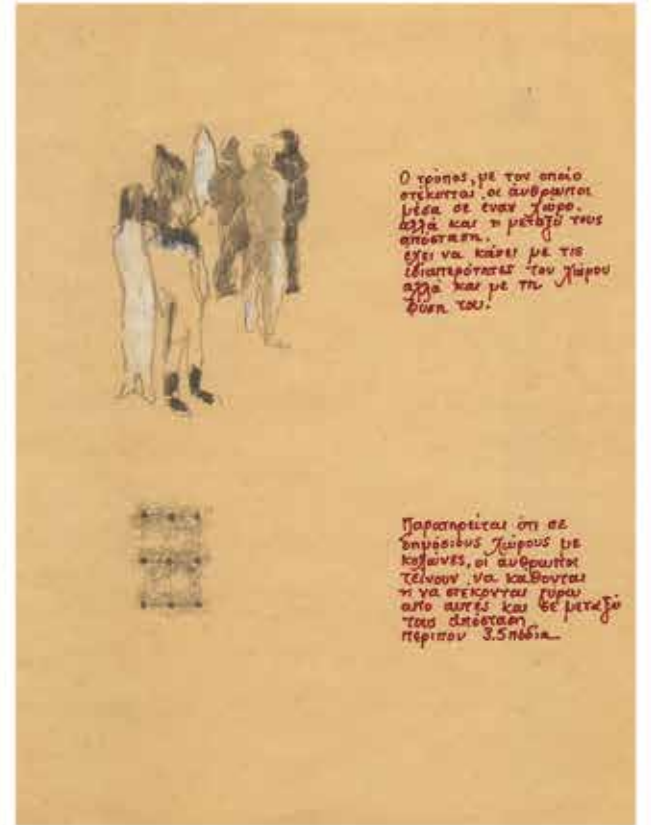 Ο τρόπος, με τον οποίο
στέκονται οι άνθρωποι
μέσα σε έναν χώρο.
αλλά και η μεταξύ τους
απόσταση.
έχει να κάνει με τις
ιδιαιτερότητες του χώρου
αλλά και με τη
φύση του.
Παρατηρείται ότι σε
δημόσιους χώρους με
κολώνες, οι άνθρωποι
τείνουν να κάθονται
ή να στέκονται γύρω
από αυτές και σε μεταξύ
τους απόσταση
περίπου 3.5 πόδια